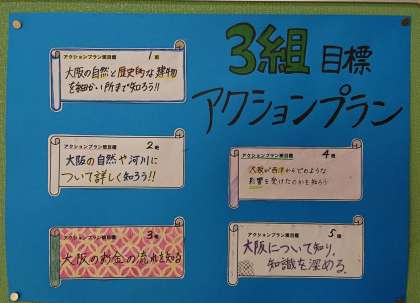 3組 目標
アクションプラン
アクションプラン班目標 1班
大阪の自然と歴史的な建物
を細かい所まで知ろう!!
アクションプラン班目標 2班
大阪の自然や河川に
ついて詳しく知ろう!!
アクションプラン班目標 3班
大阪のお金の流れを知る
アクションプラン班目標 4班
大阪が西洋からどのような
影響を受けたのかを知ろう
アクションプラン班目標 5班
大阪について知り、
知識を深める。